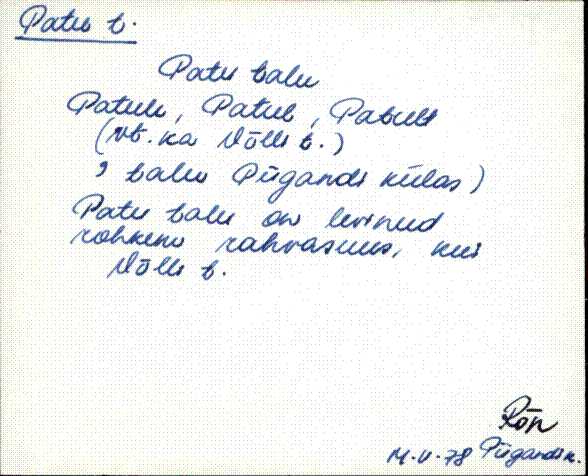 Patu t.
Patu talu
Patule, Patul, Patult
(vt. ka Võlli t.)
, talu Piigandi külas)
Patu talu on levinud
rohkem rahvasuus, kui
Võlli t.
Rõn
14.V.78 Piigandi k.